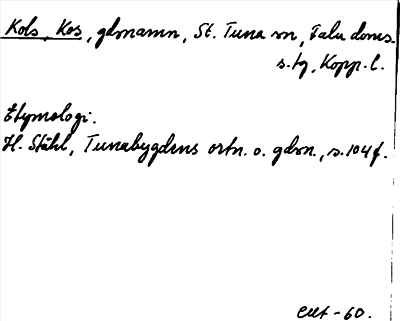 Kols, Kos, gdsnamn, St. Tuna sn, Falu doms.
s.tg, Kopp. l.
Etymologi.
H. Ståhl, Tunabygdens ortn. o. gdsn., s. 104 f.
-60.